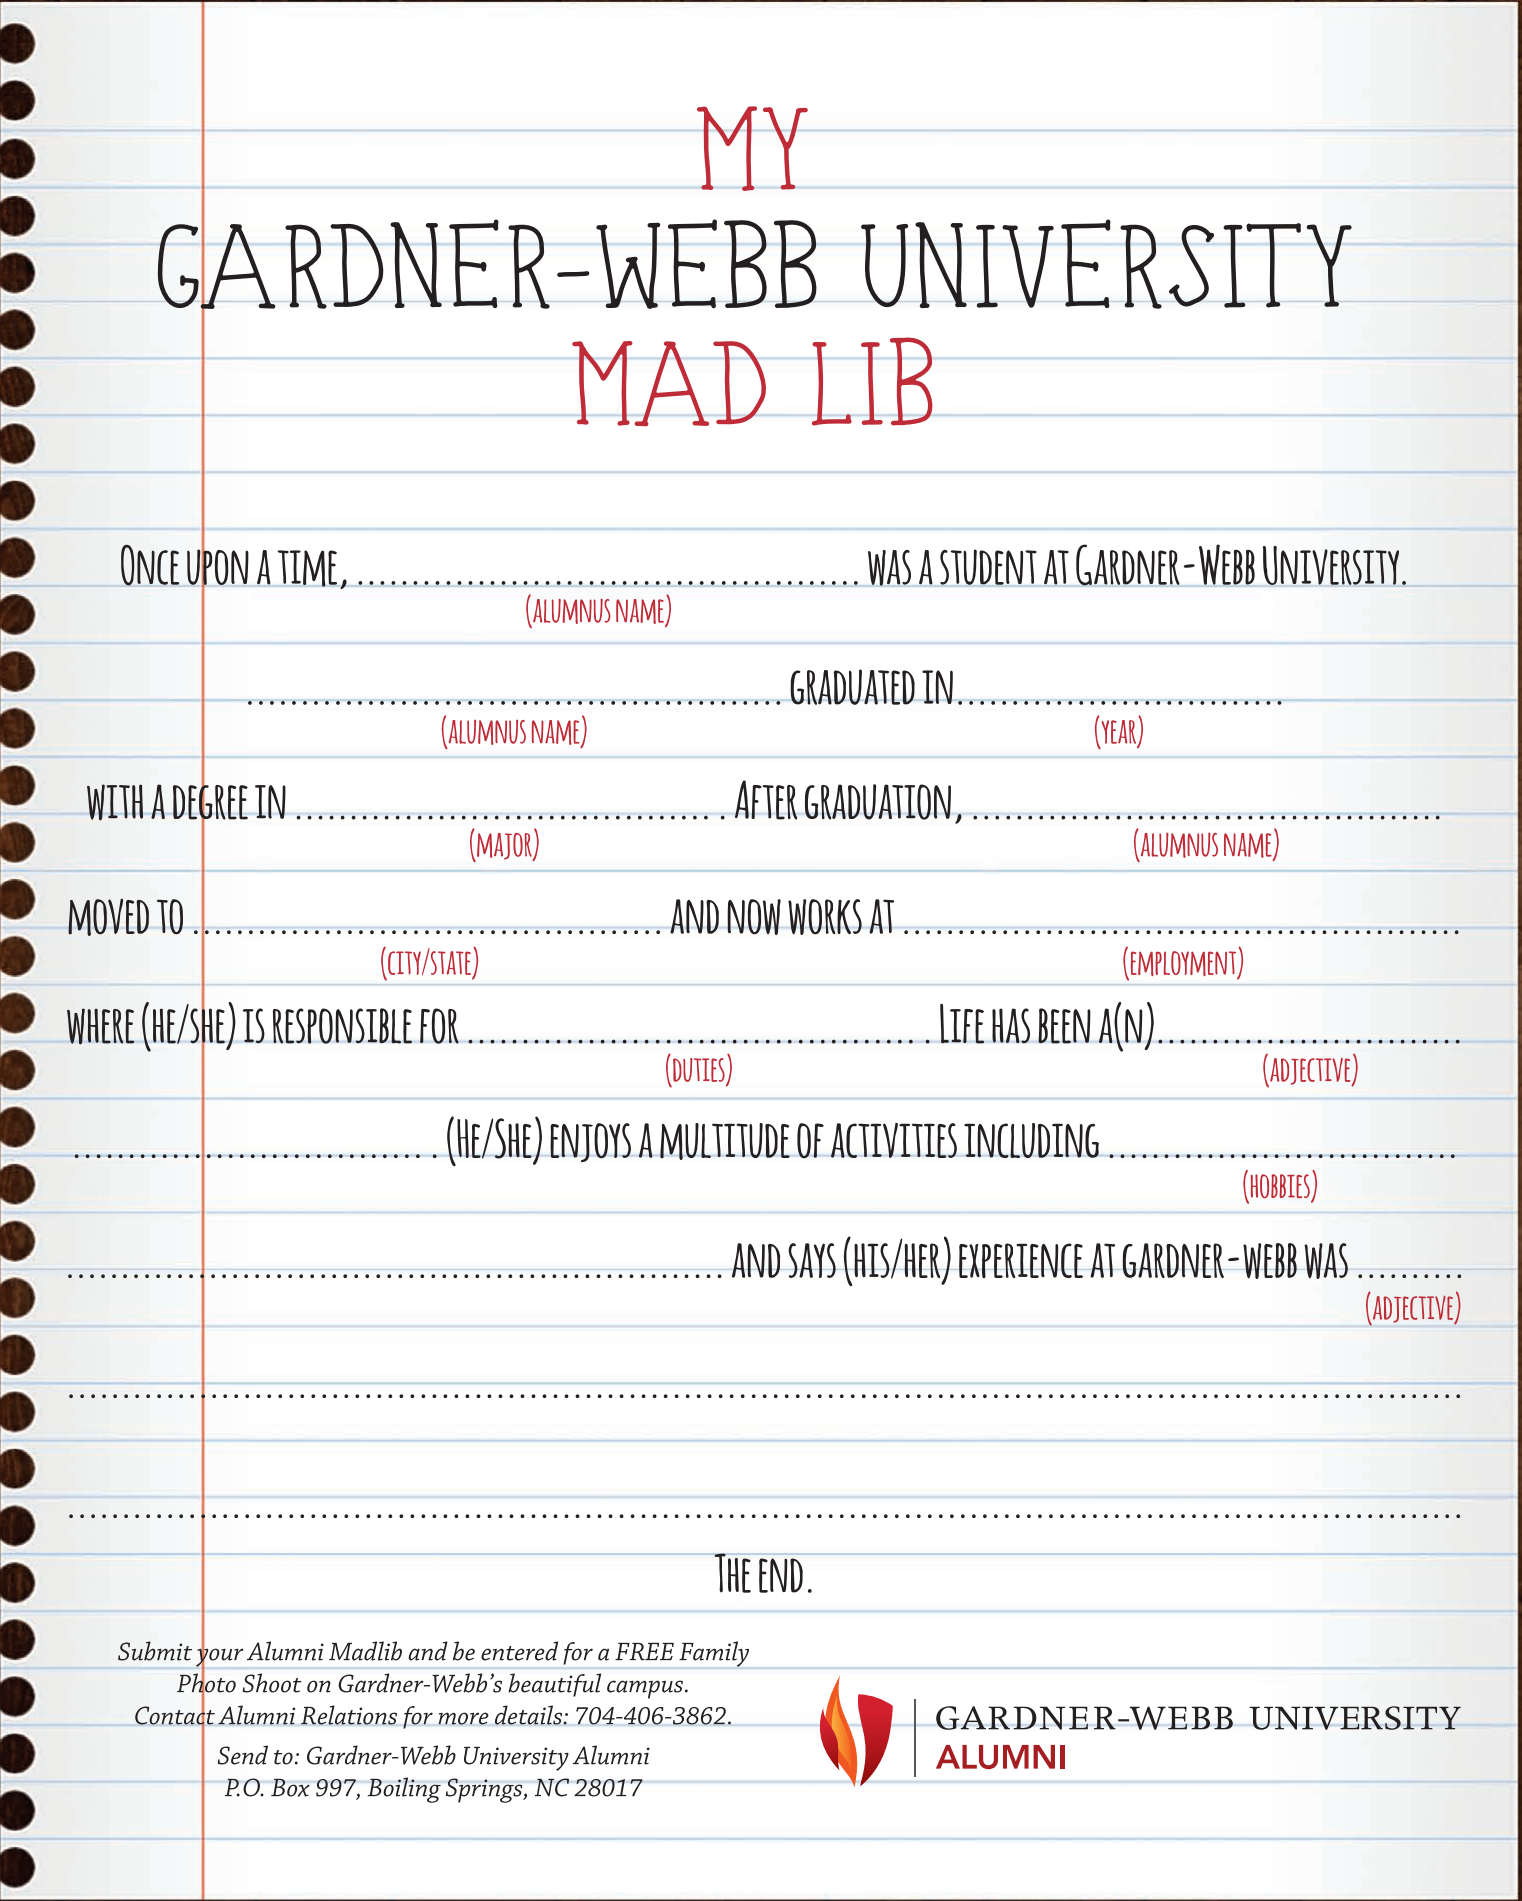 MY
GARDNER-WEBB UNIVERSITY
MAD LIB
ONCE UPON A TIME, ............................................. WAS A STUDENT AT GARDNER-WEBB UNIVERSITY.
(ALUMNUS NAME)
................................................ GRADUATED IN..............................
(ALUMNUS NAME) (YEAR)
WITH A DEGREE IN ...................................... . AFTER GRADUATION, ..........................................
(MAJOR) (ALUMNUS NAME)
MOVED TO .......................................... AND NOW WORKS AT ..................................................
(CITY/STATE) (EMPLOYMENT)
WHERE (HE/SHE) IS RESPONSIBLE FOR ......................................... . LIFE HAS BEEN A(N)............................
(DUTIES) (ADJECTIVE)
................................ . (HE/SHE) ENJOYS A MULTITUDE OF ACTIVITIES INCLUDING ...............................
(HOBBIES)
........................................................... AND SAYS (HIS/HER) EXPERIENCE AT GARDNER-WEBB WAS ..........
(ADJECTIVE)
...............................................................................................................................
...............................................................................................................................
THE END.
Submit your Alumni Madlib and be entered for a FREE Family
Photo Shoot on Gardner-Webb's beautiful campus.
Contact Alumni Relations for more details: 704-406-3862.
Send to: Gardner-Webb University Alumni
P.O. Box 997, Boiling Springs, NC 28017
GARDNER-WEBB UNIVERSITY
ALUMNI